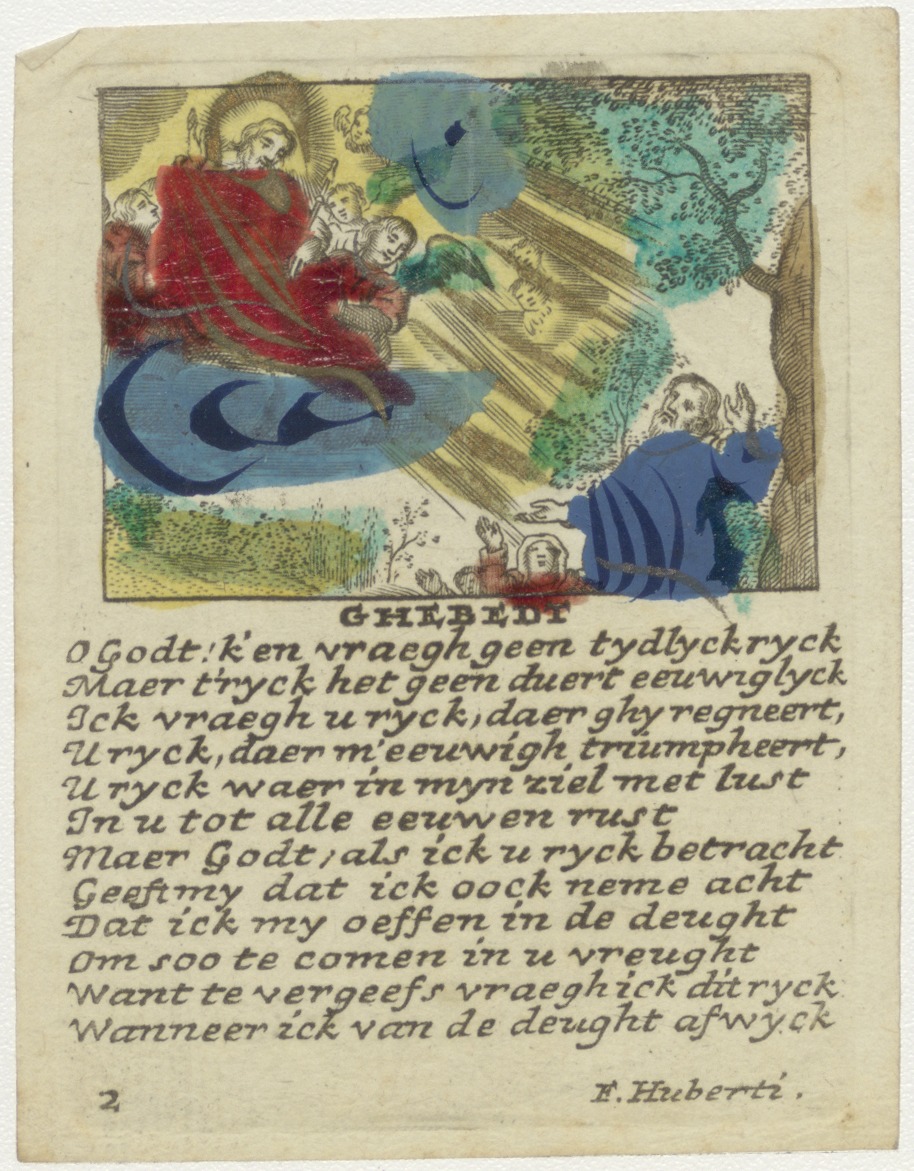 GHEBEDT
O Godt! k'en vraegh geen tydlyck ryck
Maer t'ryck het geen duert eeuwiglyck
Ick vraegh u ryck, daer ghy regneert,
U ryck, daer m'eeuwigh triumpheert,
U ryck waer in myn ziel met lust
In u tot alle eeuwen rust
Maer Godt, als ick u ryck betracht
Geeft my dat ick oock neme acht
Dat ick my oeffen in de deught
Om soo te comen in u vreught
Want te vergeefs vraegh ick dit ryck
Wanneer ick van de deught afwyck
2 F. Huberti.